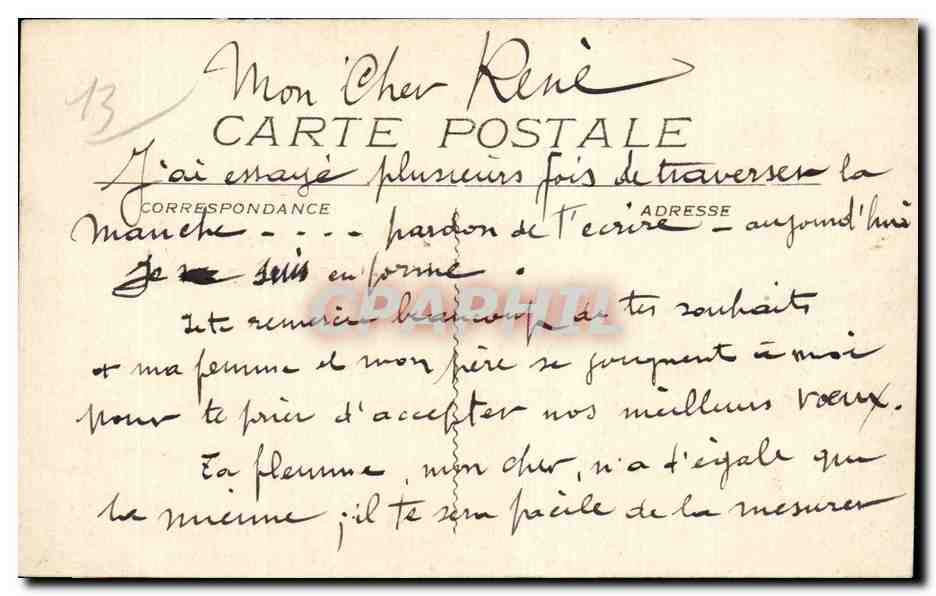 13
Mon Cher René
CARTE POSTALE
J'ai essayé plusieurs fois de traverser la
CORRESPONDANCE ADRESSE
Manche - - - - pardon de t'écrire - aujourd'hui
Je suis en forme.
Je te remercie beaucoup de tes souhaits
CPAPHIL
et ma femme et mon père se joignent à moi
pour te prier d'accepter nos meilleurs vœux.
Ta flemme, mon cher, n'a d'égale que
la mienne ; il te sera facile de la mesurer